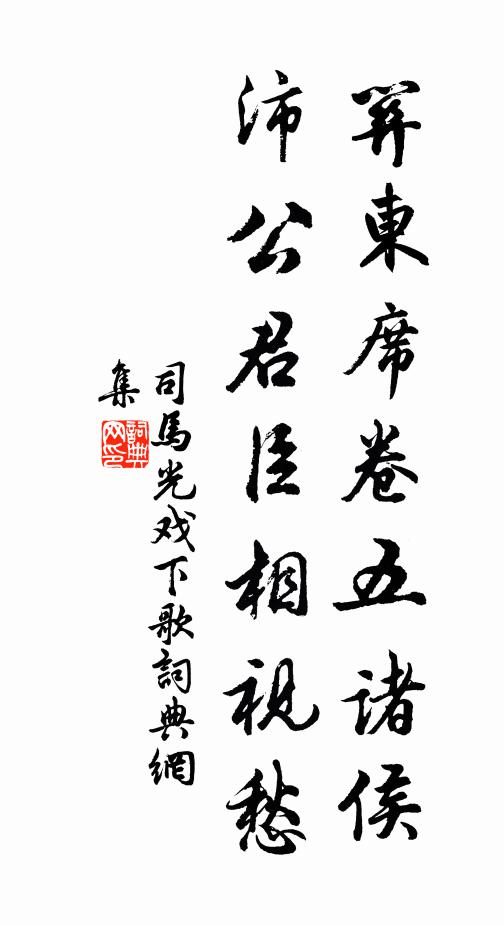 關東席卷五诸侯
沛公君臣相視愁
司馬光戏下歌詞典網
集
詞典
网印